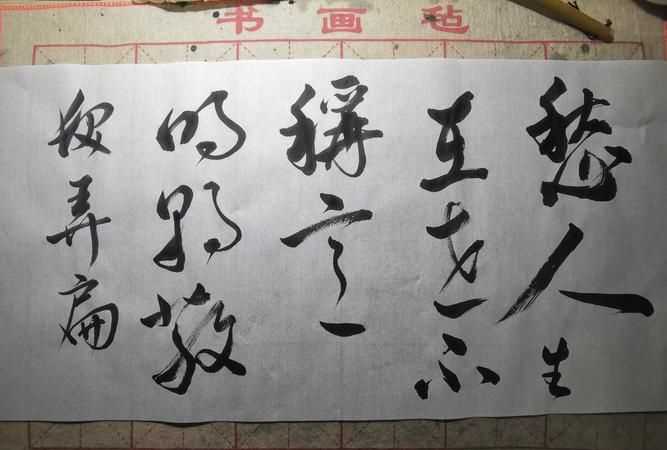 书画毡
愁人生
在世不
稱意
明朝散
发弄扁